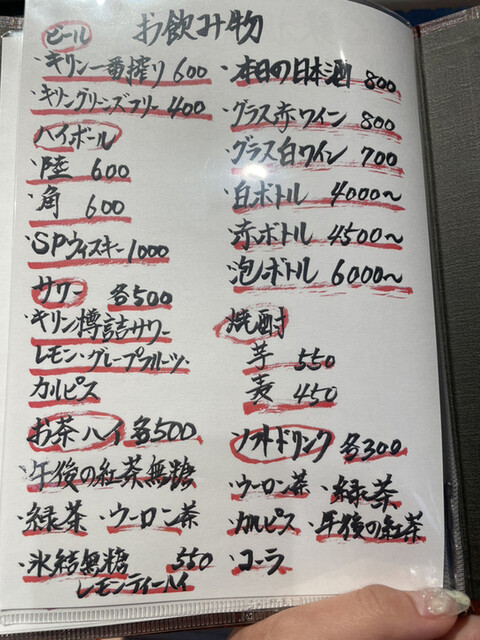 お飲み物
ビール
・キリン一番搾り 600
・キリングリーンズフリー 400
ハイボール
・陸 600
・角 600
・SPウィスキー 1000
サワー 各500
・キリン樽詰サワー
レモン・グレープフルーツ・
カルピス
お茶ハイ 各500
・午後の紅茶無糖
緑茶・ウーロン茶
・氷結無糖 550
レモンティーハイ
・本日の日本酒 800
・グラス赤ワイン 800
グラス白ワイン 700
・白ボトル 4000〜
・赤ボトル 4500〜
・泡ボトル 6000〜
焼酎
芋 550
麦 450
ソフトドリンク 各300
・ウーロン茶 ・緑茶
・カルピス ・午後の紅茶
・コーラ